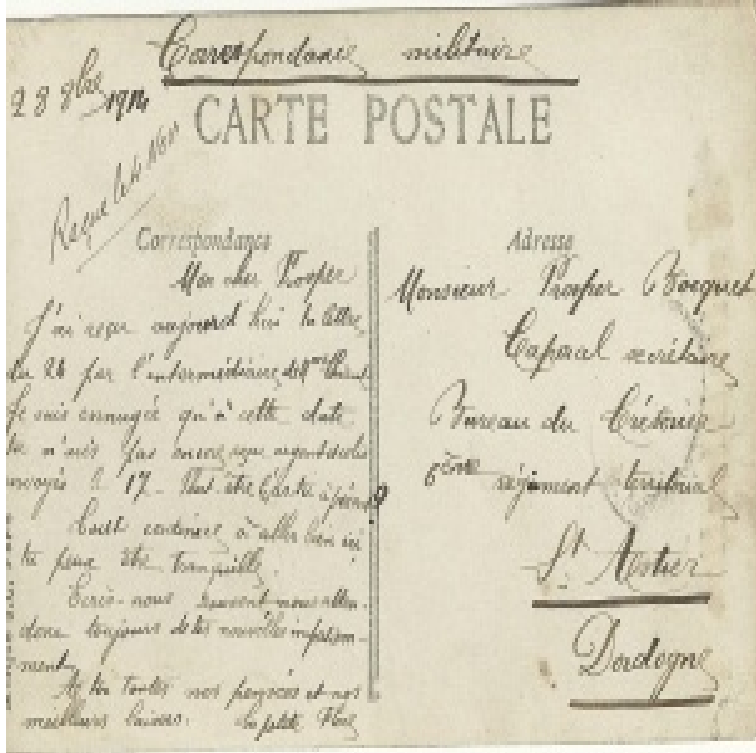 Correspondance militaire
28 8bre 1914
CARTE POSTALE
Reçue le 4 Nov
Correspondance
Mon cher Prosper
J'ai reçu aujourd'hui ta lettre
du 24 par l'intermédiaire de Mme
Je suis ennuyée qu'à cette date
tu n'aies pas encore reçu
envoyés le 17 - Peut être
Tout continue à aller bien ici
tu peux être tranquille.
Ecris-nous souvent nous atten-
dons toujours de tes nouvelles impatiem-
ment
A toi toutes nos pensées et nos
meilleurs baisers. ta petite
Adresse
Monsieur Prosper Bocquet
Caporal secrétaire
Bureau du Trésorier
6ème régiment territorial
St Astier
Dordogne